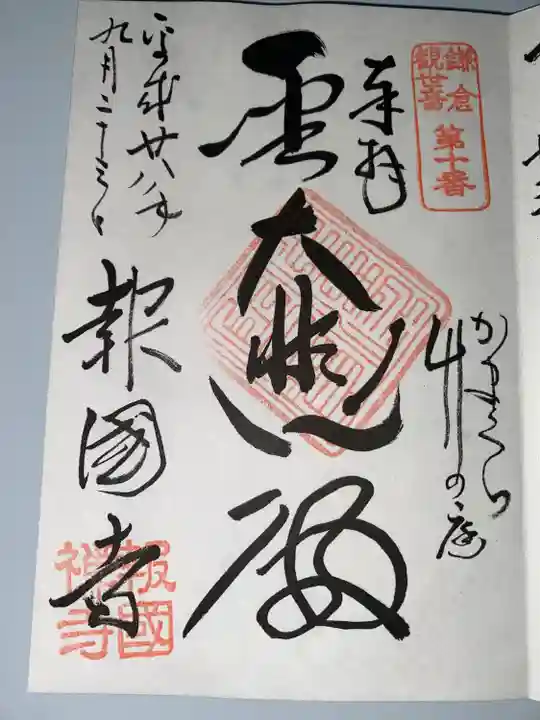 鎌倉
観世音
第十番
奉拝
かまくら
竹の庭
大悲
平成廿八年
九月二十三日
報國寺
報國
禅寺